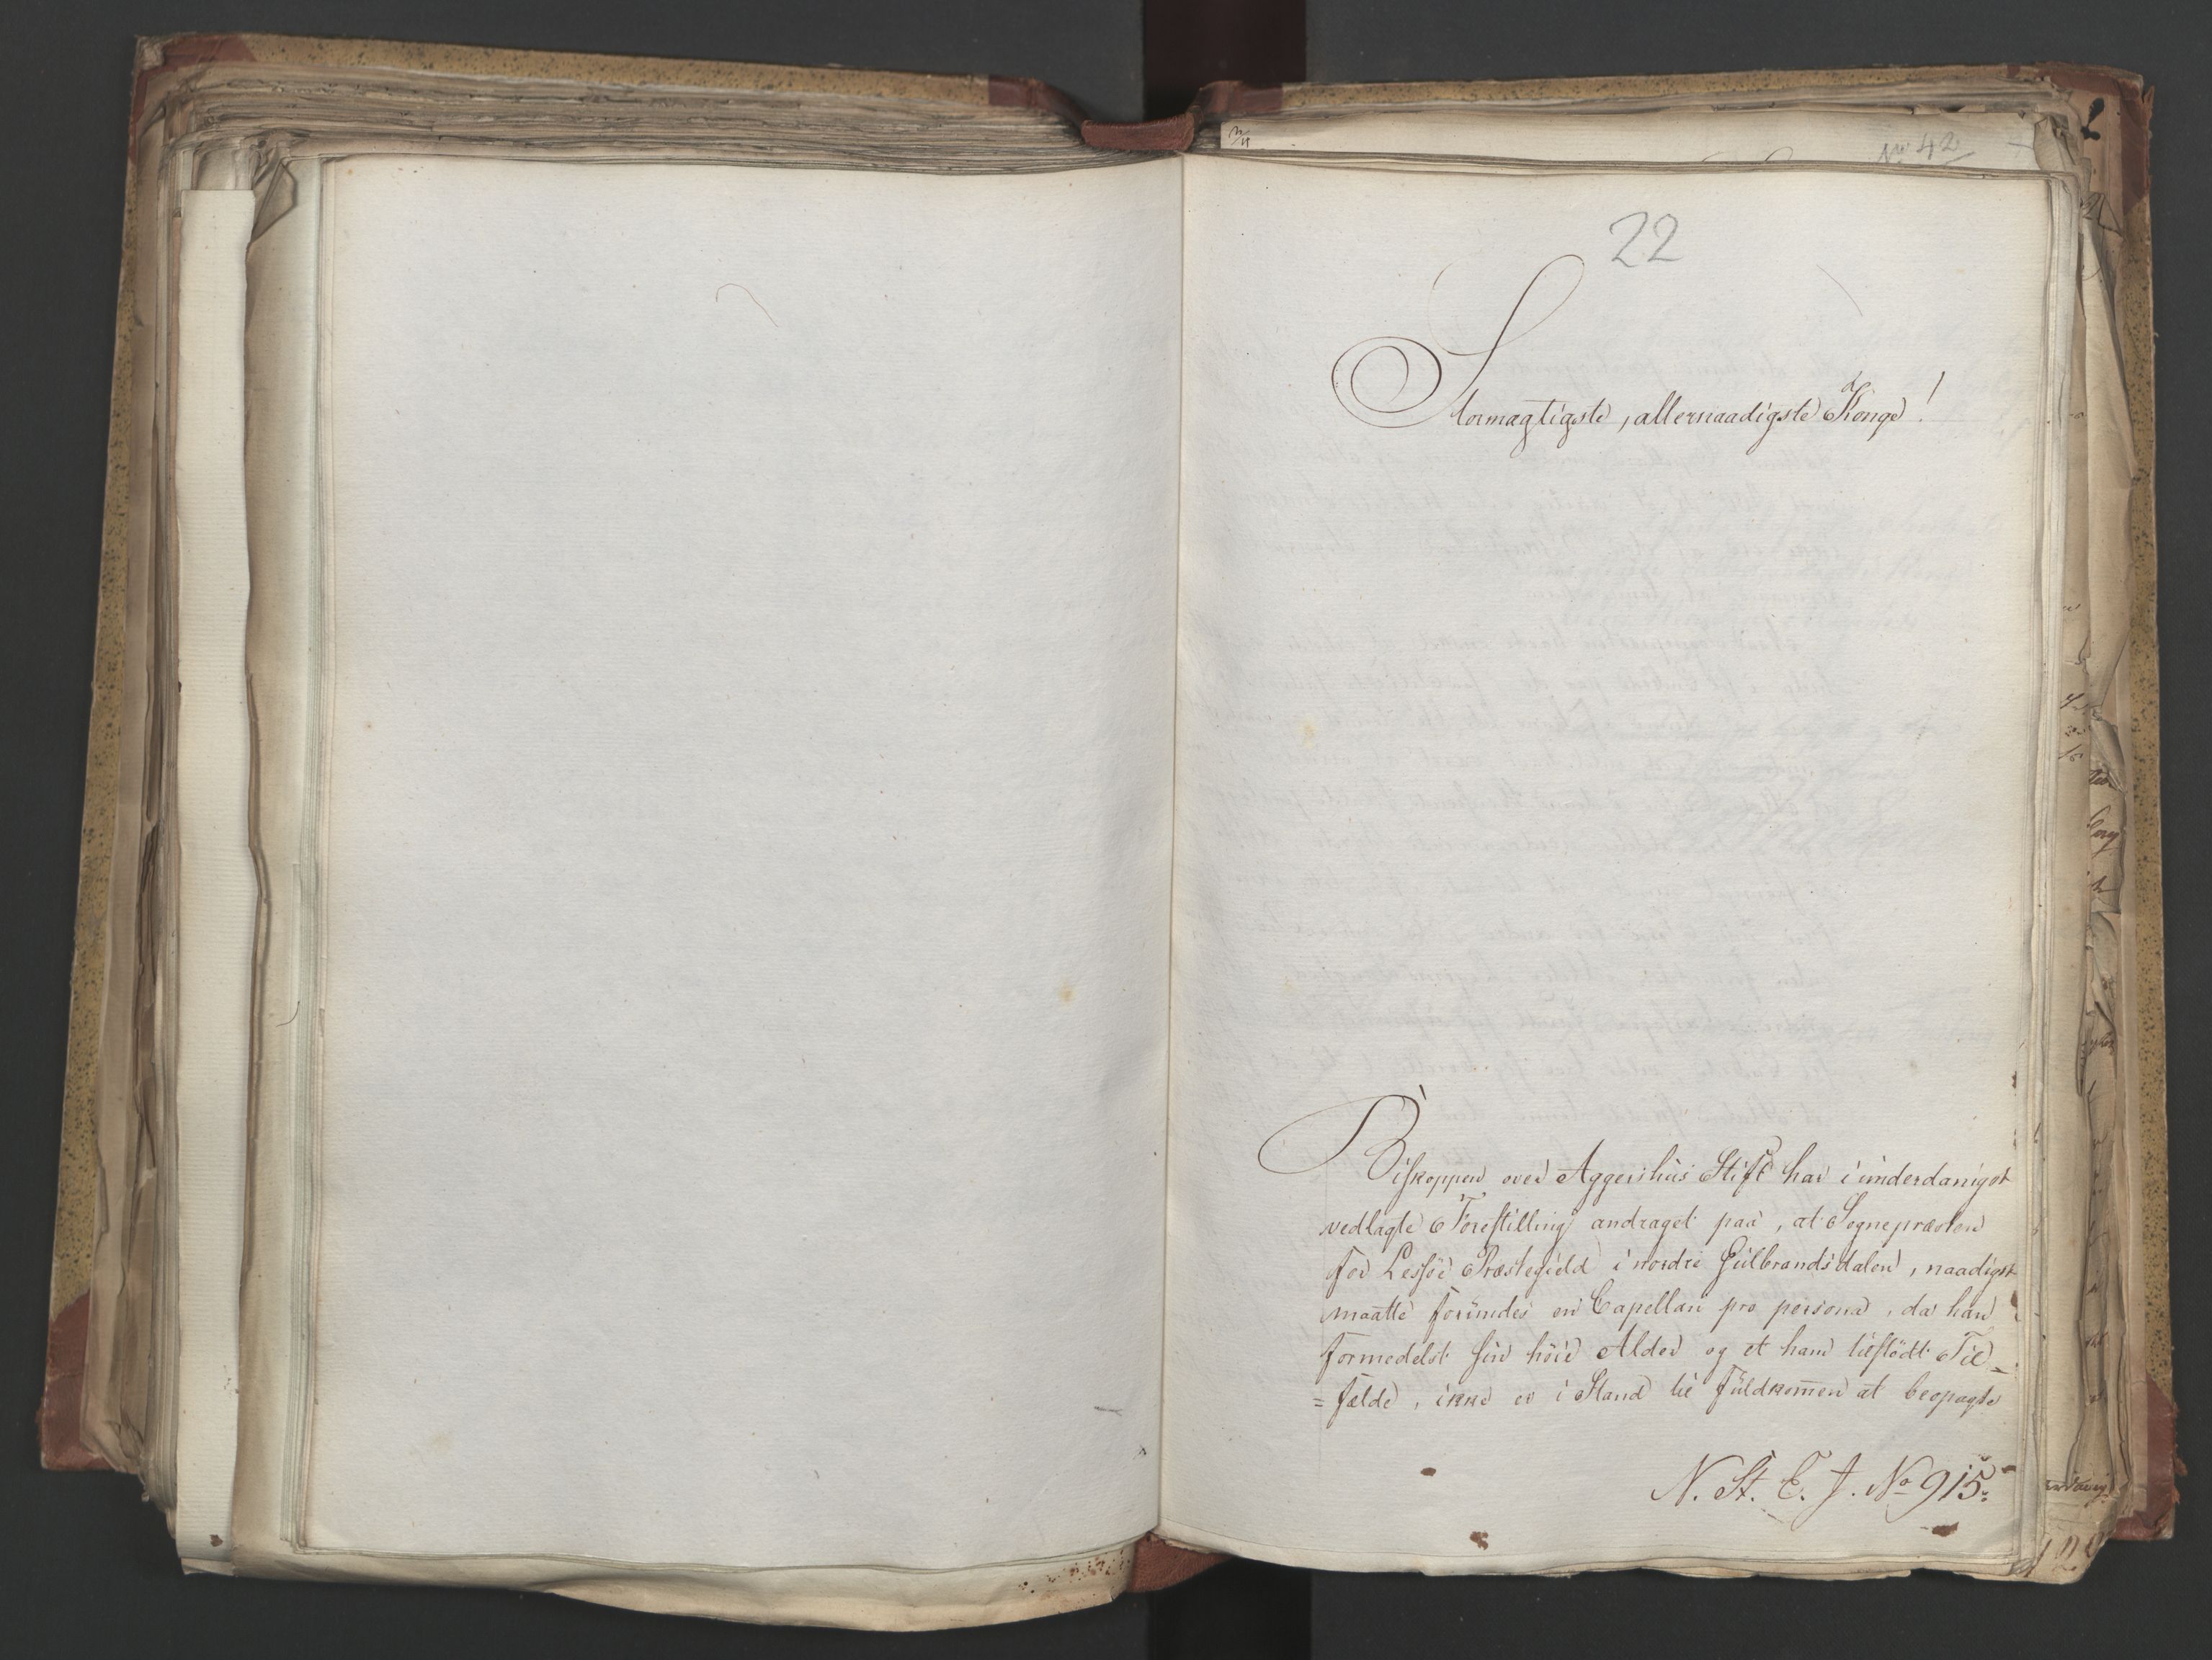 No 42
22
Stormagtigste, allernaadigste Konge!
Biskoppen over Aggershuus Stift har i underdanigst
vedlagte Forestilling andraget paa, at Sognepræsten
for Lessøe Præstegield i nordre Gulbrandsdalen, naadigst
maatte forundes en Capellan pro persona, da han
formedelst sin høie Alder og et ham tilstødt Til-
=fælde, ikke er i Stand til fuldkom̄en at beopagte
N. St. E. J. No 915.